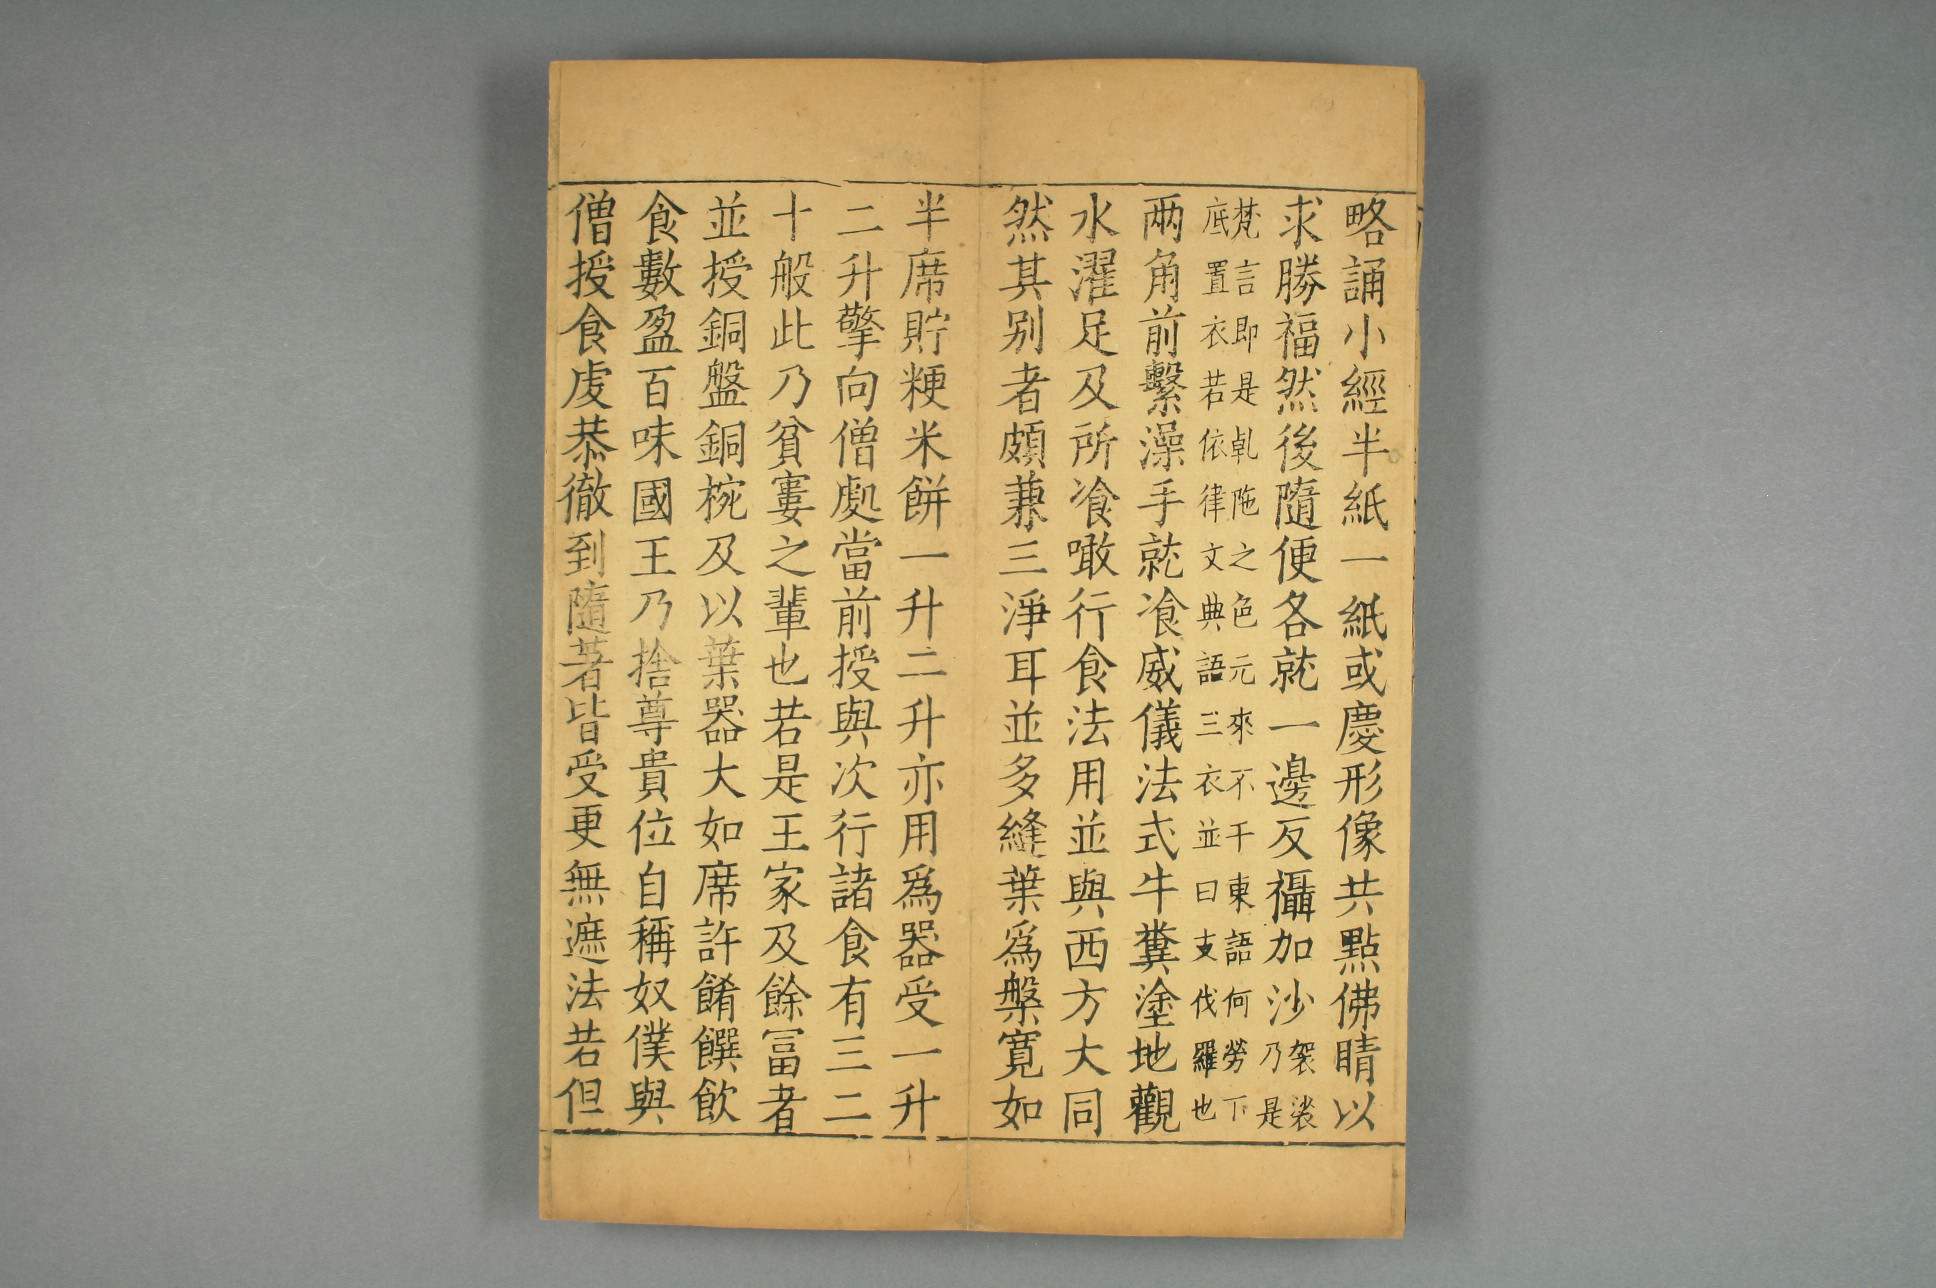 略誦小經半紙一紙或慶形像共點佛睛以
求勝福然後隨便各就一邊反攝加沙袈裟乃是
梵言即是乹陁之色元來不干東語何勞下
底置衣若依律文典語三衣並曰支伐羅也
兩角前繫澡手就飡威儀法式牛糞塗地觀
水濯足及所飡噉行食法用並與西方大同
然其别者頗兼三淨耳並多縫葉爲槃寬如
半席貯粳米餅一升二升亦用爲器受一升
二升擎向僧處當前授與次行諸食有三二
十般此乃貧窶之輩也若是王家及餘冨者
並授銅盤銅椀及以葉器大如席許餚饌飲
食數盈百味國王乃捨尊貴位自稱奴僕與
僧授食虔恭徹到隨著皆受更無遮法若但